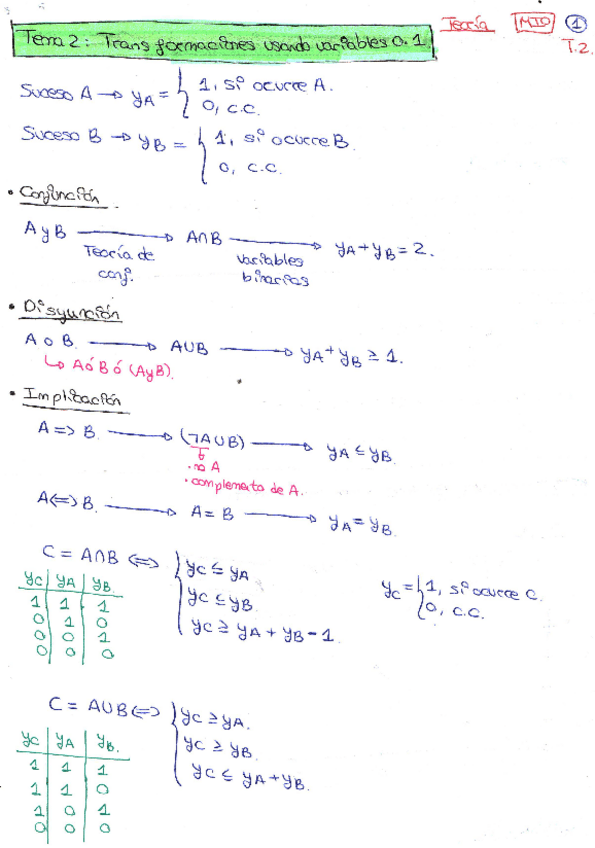 Teoría MIO 1
Tema 2: Transformaciones usando variables 0.1. T.2.
Suceso A → yA = { 1, si ocurre A.
0, c.c.
Suceso B → yB = { 1, si ocurre B.
0, c.c.
• Conjunción
A y B → A∩B → yA + yB = 2.
Teoría de conj.
variables binarias
• Disyunción
A o B. → A∪B → yA + yB ≥ 1.
↳ A ó B ó (A y B).
• Implicación
A => B. → (¬A∪B) → yA ≤ yB.
• no A
• complemento de A.
A <=> B. → A = B → yA = yB.
C = A∩B <=> { yC ≤ yA
yC ≤ yB.
yC ≥ yA + yB - 1.
yC = { 1, si ocurre C.
0, c.c.
yC yA yB.
1 1 1
0 1 0
0 0 1
0 0 0
C = A∪B <=> { yC ≥ yA.
yC ≥ yB.
yC ≤ yA + yB.
yC yA yB.
1 1 1
1 1 0
1 0 1
0 0 0